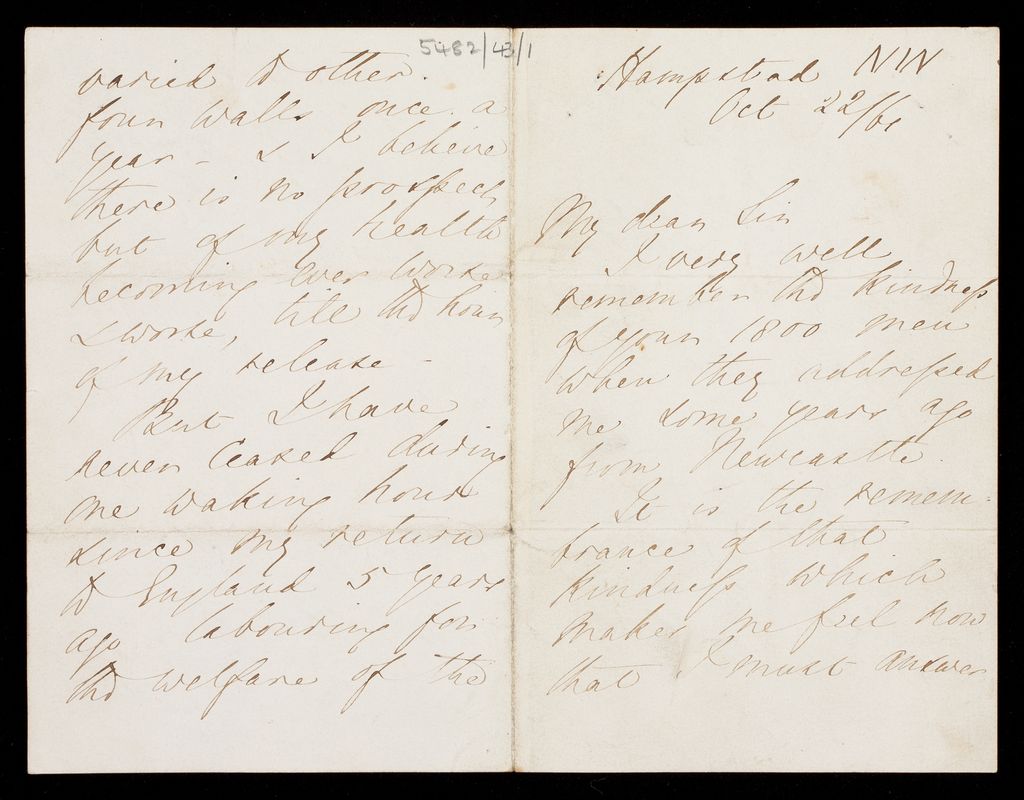 5482/43/1
Hampstead NW
Oct 22/61
My dear Sir
I very well
remember the kindness
of your 1800 men
when they addressed
me some years ago
from Newcastle.
It is the remem-
brance of that
kindness which
makes me feel now
that I must answer
varied to other
four walls once a
year - & I believe
there is no prospect
but of my health
becoming ever worse
& worse, till the hour
of my release -
But I have
never ceased during
one waking hour
since my return
to England 5 years
ago labouring for
the welfare of the